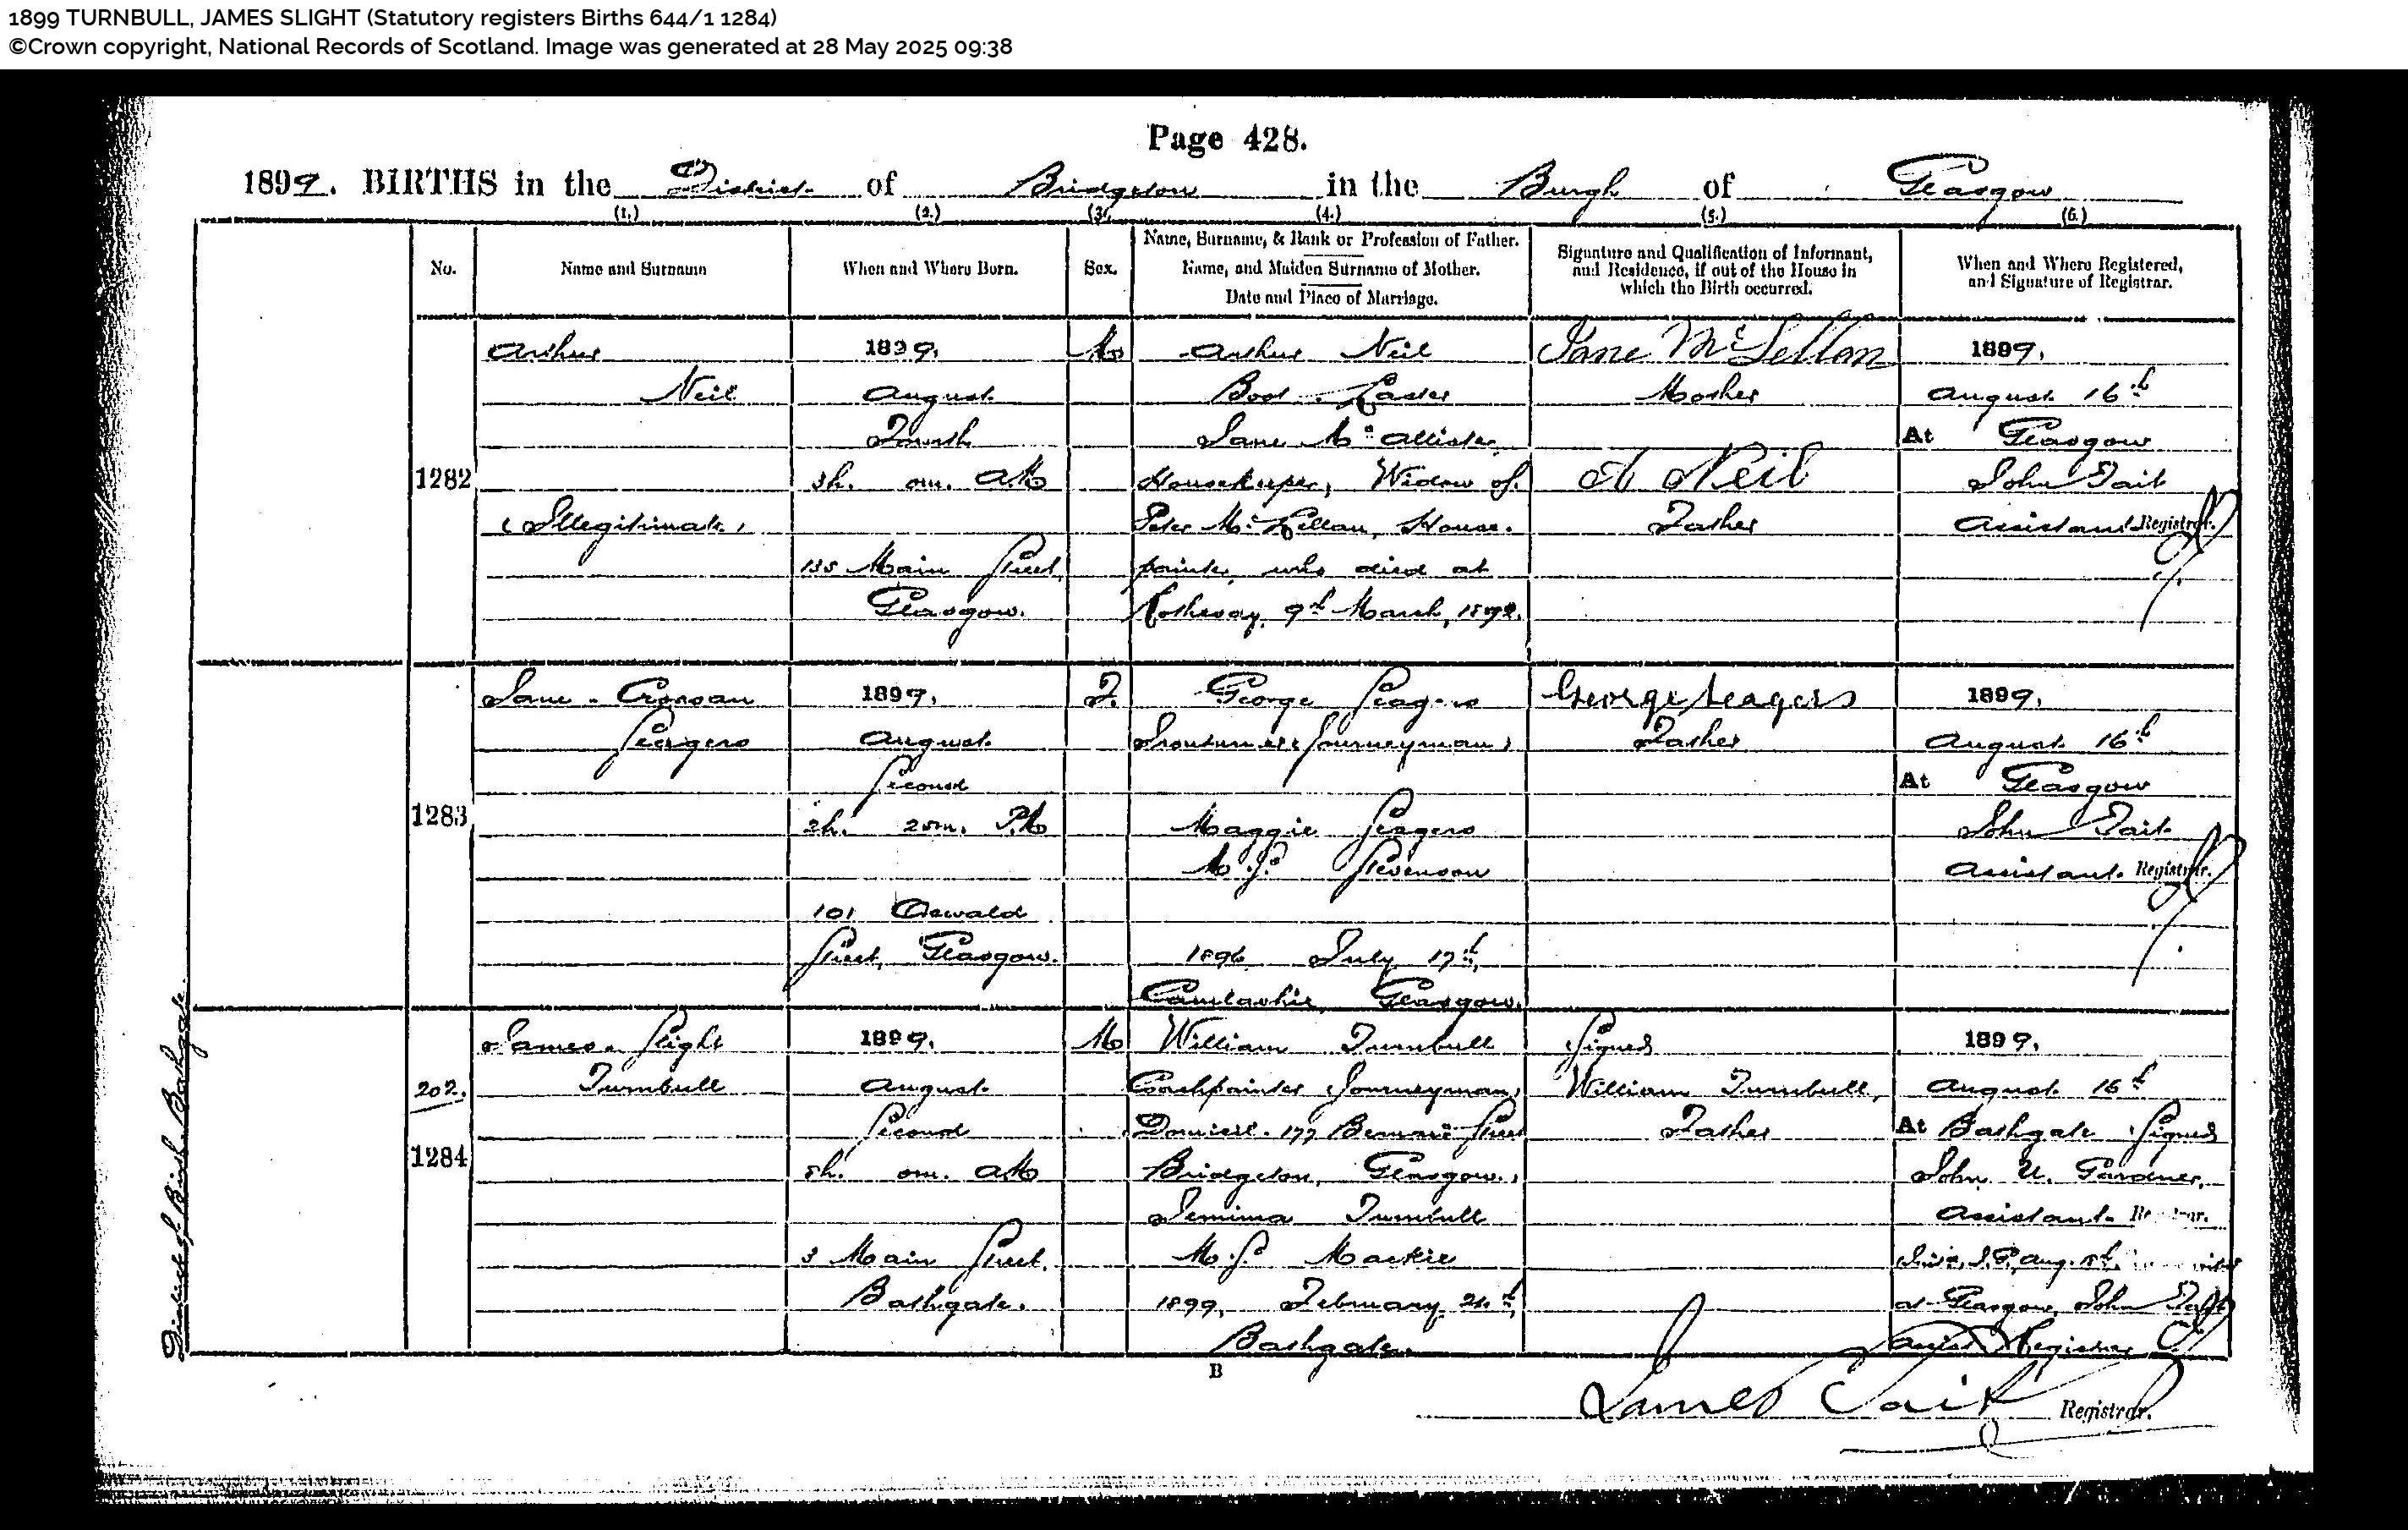 1899 TURNBULL, JAMES SLIGHT (Statutory registers Births 644/1 1284)
©Crown copyright, National Records of Scotland. Image was generated at 28 May 2025 09:38
Page 428.
1899. BIRTHS in the District of Bridgeton in the Burgh of Glasgow
(1.) (2.) (3.) (4.) (5.) (6.)
No.
Name and Surname
When and Where Born.
Sex.
Name, Surname, & Rank or Profession of Father.
Name, and Maiden Surname of Mother.
Date and Place of Marriage.
Signature and Qualification of Informant,
and Residence, if out of the House in
which the Birth occurred.
When and Where Registered,
and Signature of Registrar.
1282
Arthur
Neil
(Illegitimate)
1899.
August
Fourth
3h. 0m. AM
135 Main Street
Glasgow.
M
Arthur Neil
Boot Laster
Jane McAllister
Housekeeper, Widow of
Peter McLellan, House-
painter, who died at
Rothesay, 9th March, 1892.
Jane McLellan
Mother
A Neil
Father
1899.
August 16th
At Glasgow
John Tait
Assistant Registrar.
1283
Jane Crossan
Seagers
1899.
August
Second
2h. 20m. PM
101 Oswald
Street, Glasgow.
F.
George Seagers
(Journeyman)
Maggie Seagers
M.S. Stevenson
1896 July 17th
Camlachie, Glasgow.
George Seagers
Father
1899.
August 16th
At Glasgow
John Tait
Assistant Registrar.
District of Birth Bathgate.
202.
1284
James Slight
Turnbull
1899.
August
Second
8h. 0m. AM
3 Main Street
Bathgate.
M
William Turnbull
Coachpainter (Journeyman)
Domicile 177 Street
Bridgeton, Glasgow.
Jemima Turnbull
M.S. Mackie
1899, February 24th
Bathgate.
Signed
William Turnbull,
Father
1899.
August 16th
At Bathgate Signed
John U. Gardner,
Assistant Registrar.
Aug.
at Glasgow, John Tait
Assist Registrar
B
James Tait Registrar.